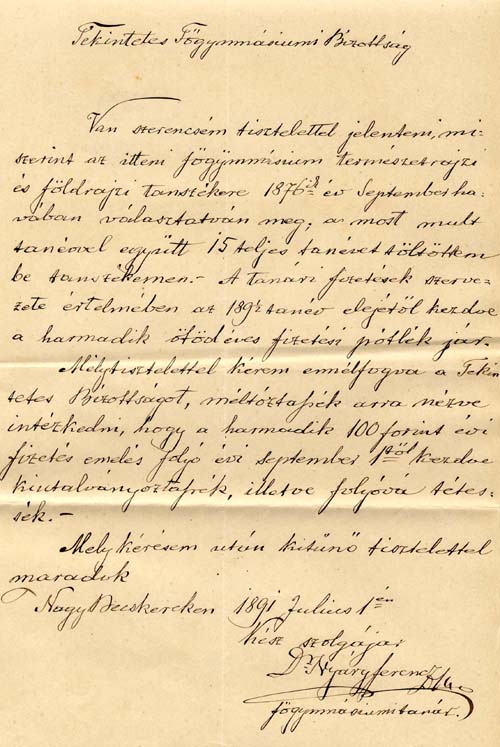 Tekintetes Főgymnásiumi Bizottság
Van szerencsém tisztelettel jelenteni, mi-
szerint az itteni főgymnásium természetrajzi
és földrajzi tanszékére 1876ik év September ha-
vában választatván meg, a most mult
tanévvel együtt 15 teljes tanévet töltöttem
be tanszékemen.- A tanári fizetések szerve-
zete értelmében az 189½ tanév elejétől kezdve
a harmadik ötödéves fizetési pótlék jár.
Mélytisztelettel kérem ennélfogva a Tekin
tetes Bizottságot, méltóztassék arra nézve
intézkedni, hogy a harmadik 100 forint évi
fizetés emelés folyó évi september 1től kezdve
kiutalványoztassék, illetve folyóvá tétes-
sék.-
Mely kérésem után kitűnő tisztelettel
maradok
Nagy Becskereken 1891 Julius 1én
kész szolgájar
Dr Nyáry ferencz
főgymnásiumi tanár.